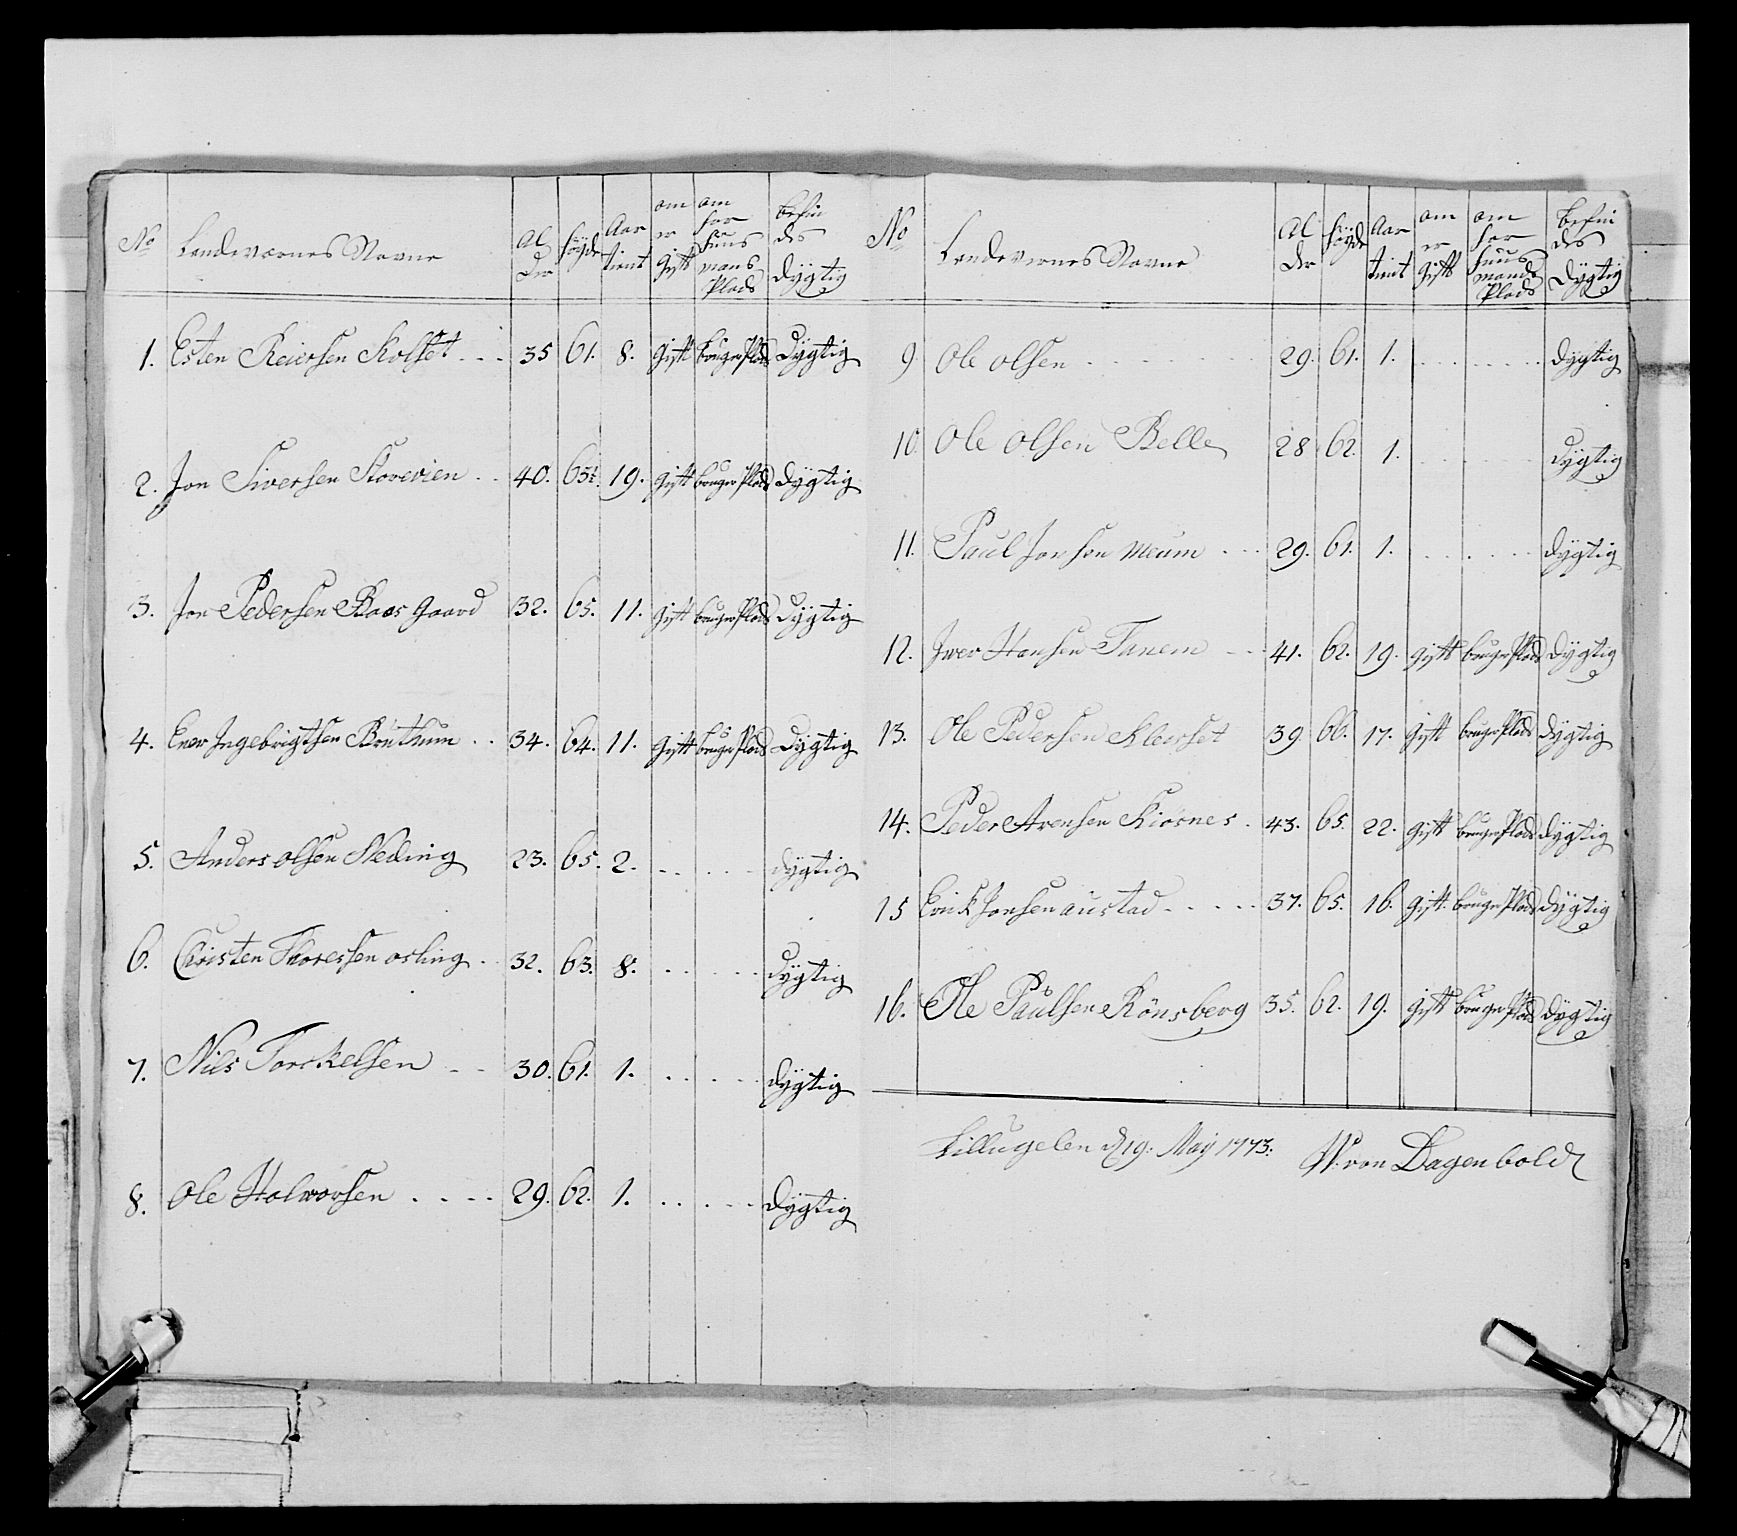 No Landeværnes Navne Al der höyde Aar tient om er Gift om har huus mans Plads befin des Dygtig
1. Esten Reiersen Kolset 35 61. 8. Gift bruger Plads Dygtig
2. Jon Siversen Storevien 40. 65½ 19. Gift bruger Plads Dygtig
3. Jon Pedersen Baar Gaard 32. 65. 11. Gift bruger Plads Dygtig
4. Ener Ingebrigtsen 34. 64. 11. Gift bruger Plads Dygtig
5. Anders olsen 23. 65. 2. Dygtig
6. Christen Thoresen osling 32. 63. 8. Dygtig
7. Nils Torckelsen 30. 61. 1. Dygtig
8. Ole Halvorsen 29. 62. 1. Dygtig
No Landevernes Navne Al der höyde Aar tient om er Gift om har huus mands Plads befin des Dygtig
9 Ole olsen 29. 61. 1. Dygtig
10 Ole olsen Belle 28 62. 1. Dygtig
11. Paul Jonsen Meum 29. 61. 1. Dygtig
12. Iver Hansen Tanem 41. 62. 19. Gift bruger Plads Dygtig
13. Ole Pedersen Kleset 39. 66. 17. Gift bruger Plads Dygtig
14. Peder Arensen Kiösnes 43. 65. 22. Gift bruger Plads Dygtig
15 Erick Jonsen austad 37. 65. 16. Gift bruger Plads Dygtig
16. Ole Paulsen Rönsberg 35. 62. 19. Gift bruger Plads Dygtig
Lillugelen d 19. May 1773. von Dagenbold